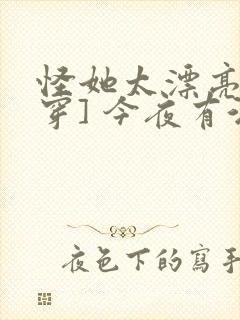 怪她太漂亮
穿] 今夜有
夜色下的寫手